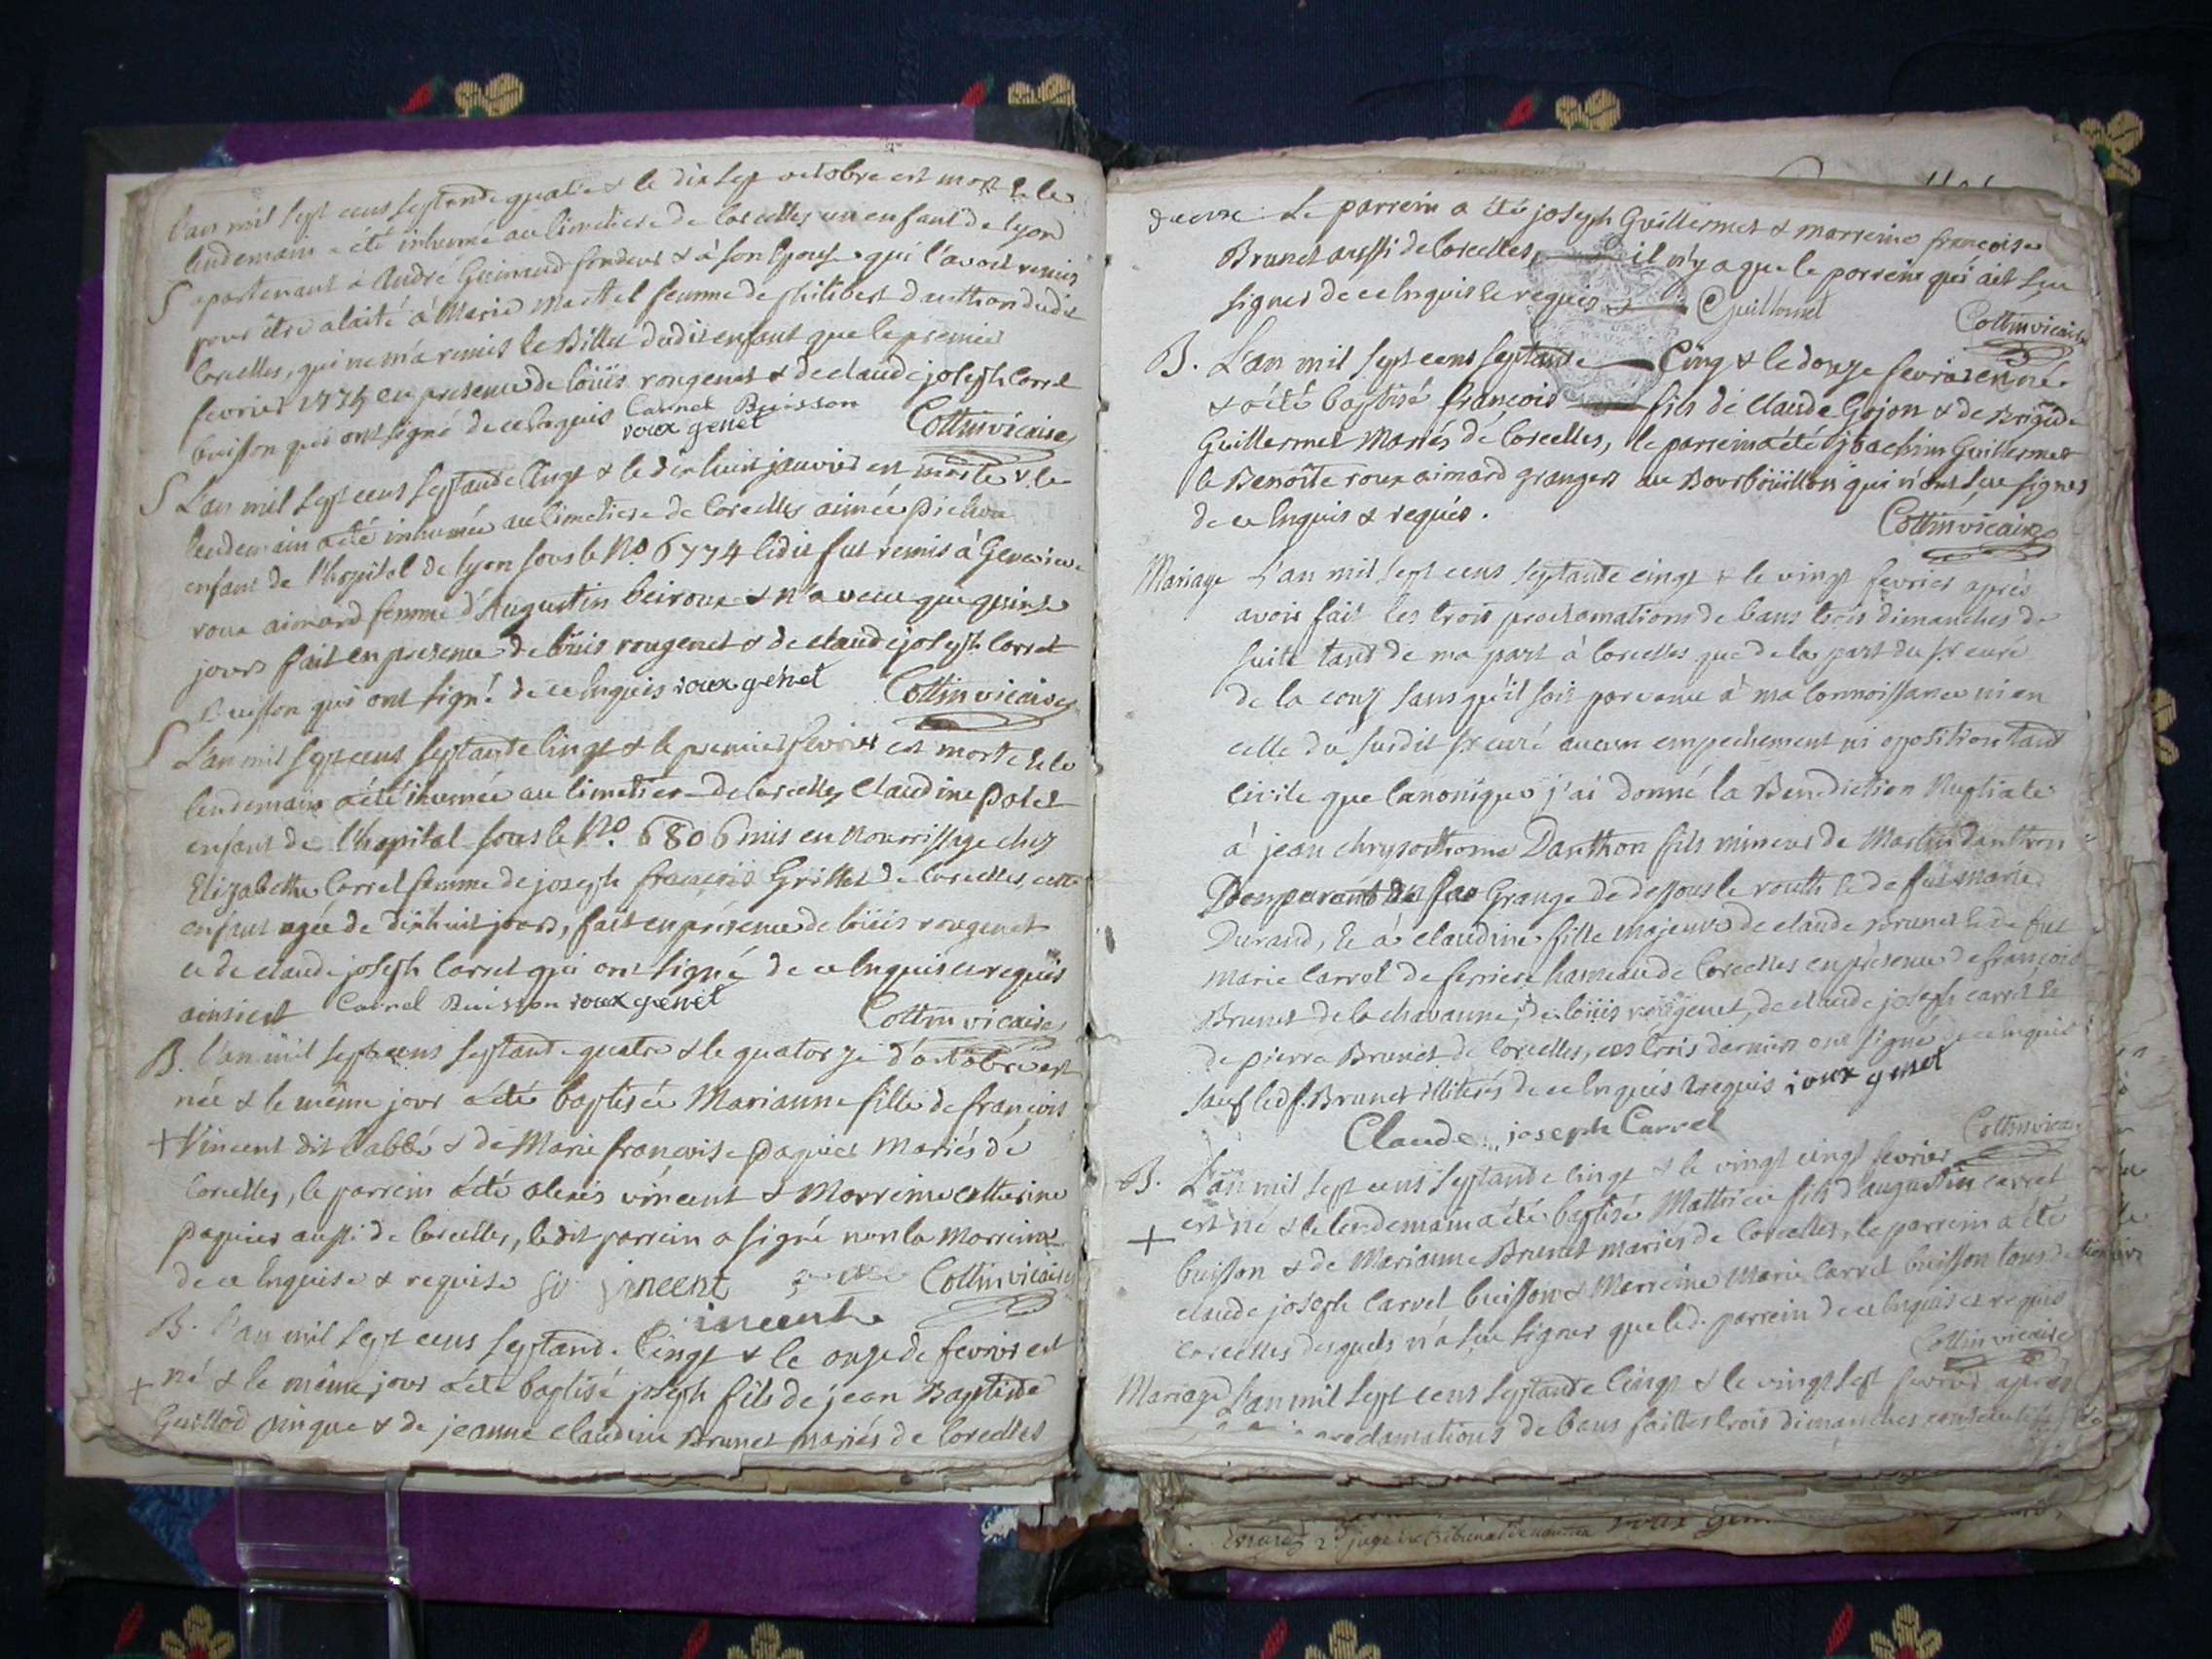 l'an mil sept cens septande quatre & le dix sept octobre est mort & le
lendemain a été inhumé au cimetiere de Corcelles un enfant de lyon
S apartenant à André Guinaud fondeur & à son Epouse qui l'avoit remis
pour être alaité à Marie Martel femme de philibert dauthon dudit
Corcelles, qui ne m'a remis le Billet dudit enfant que le premier
fevrier 1775 en presence de loüis rougenet & de claude joseph Carrel
buisson qui ont signé de ce Enquis Carrel Buisson
roux genet Cottin vicaire
S L'an mil sept cens septande Cinqt & le dix huit janvier est morte & le
lendemain a été inhumée au cimetiere de Corcelles aimée
enfant de l'hopital de lyon sous le No. 6774 ledit fut remis à Genevieve
roux aimard femme d'Augustin beiroux & n'a vecu que quinze
jours fait en presence de loüis rougenet & de claude joseph Carrel
buisson qui ont signé de ce Enquis roux genet Cottin vicaire
S L'an mil sept cens septande Cinqt & le premier fevrier est morte & le
lendemain a été inhumée au cimetier de Corcelles Claudine Polet
enfant de l'hopital sous le No. 6806 mis en Nourrissage chez
Elizabeth Carrel femme de joseph françois Grillet de Corcelles, cette
enfant agée de dixhuit jours, fait en présence de loüis rougenet
et de claude joseph Carrel qui ont signé de ce Enquis et requis
ainsi est Carrel Buisson roux genet Cottin vicaire
B. l'an mil sept cens septande quatre & le quatorze d'octobre est
née & le même jour a été baptisée Marianne fille de françois
+ Vincent dit l'abbé & de Marie françoise paquier Mariés de
Corcelles, le parrein a été alexis vincent & Marreine Catherine
paquier aussi de Corcelles, le dit parrein a signé non la Marreine
de ce Enquise & requise vincent Cottin vicaire
incent
B. l'an mil sept cens septande Cinqt & le onze de fevrier est
+ né & le même jour a été baptisé joseph fils de jean Baptiste
Guillod & de jeanne claudine Brunet mariés de Corcelles
Le parrein a été joseph Guillermet & marreine françoise
Brunet aussi de Corcelles, il n'y a que le parrein qui ait sçu
signer de ce Enquis & requis Guillermet
Cottin vicaire
B. L'an mil sept cens septande Cinq & le douze fevrier est né
& a été baptisé françois fils de Claude Gojon & de Brigide
Guillermet Mariés de Corcelles, le parrein a été joachim Guillermet
& Benoîte roux aimard grangers au Bourboüillon qui n'ont sçu signer
de ce Enquis & requis.
Cottin vicaire
Mariage L'an mil sept cens septande cinqt & le vingt fevrier aprés
avoir fait les trois proclamations de bans trois dimanches de
suite tant de ma part à Corcelles que de la part du sr curé
de la coux sans qu'il soit parvenu à ma connoissance ni en
celle du susdit sr curé aucun empechement ni oposition tant
civile que canonique j'ai donné la Benediction Nuptiale
à jean chrysosthome Danthon fils mineur de Martin danthon
Grange de dessous le & de fut marie
Durand, & à claudine fille majeure de claude Brunet & de fut
marie Carrel de ferriere hameau de Corcelles en présence de françois
Brunet de la chavanne, de loüis rougenet, de claude joseph carrel &
de pierre Brunet de Corcelles, ces trois derniers ont signé de ce Enquis
sauf led f. Brunet illiteré de ce Enquis & requis roux genet
Claude joseph Carrel
Cottin vicaire
B. L'an mil sept cens septande Cinqt & le vingt cinqt fevrier
est né & le lendemain a été baptisé Matthieu fils d'augustin carrel
+ buisson & de Marianne Brunet mariés de Corcelles, le parrein a été
claude joseph Carrel buisson & Marreine Marie Carrel buisson tous de
corcelles desquels n'a sçu signer que led. parrein de ce Enquis et requis
Cottin vicaire
Mariage L'an mil sept cens septande Cinqt & le vingt sept fevrier aprés
proclamations de bans faittes trois dimanches consecutifs